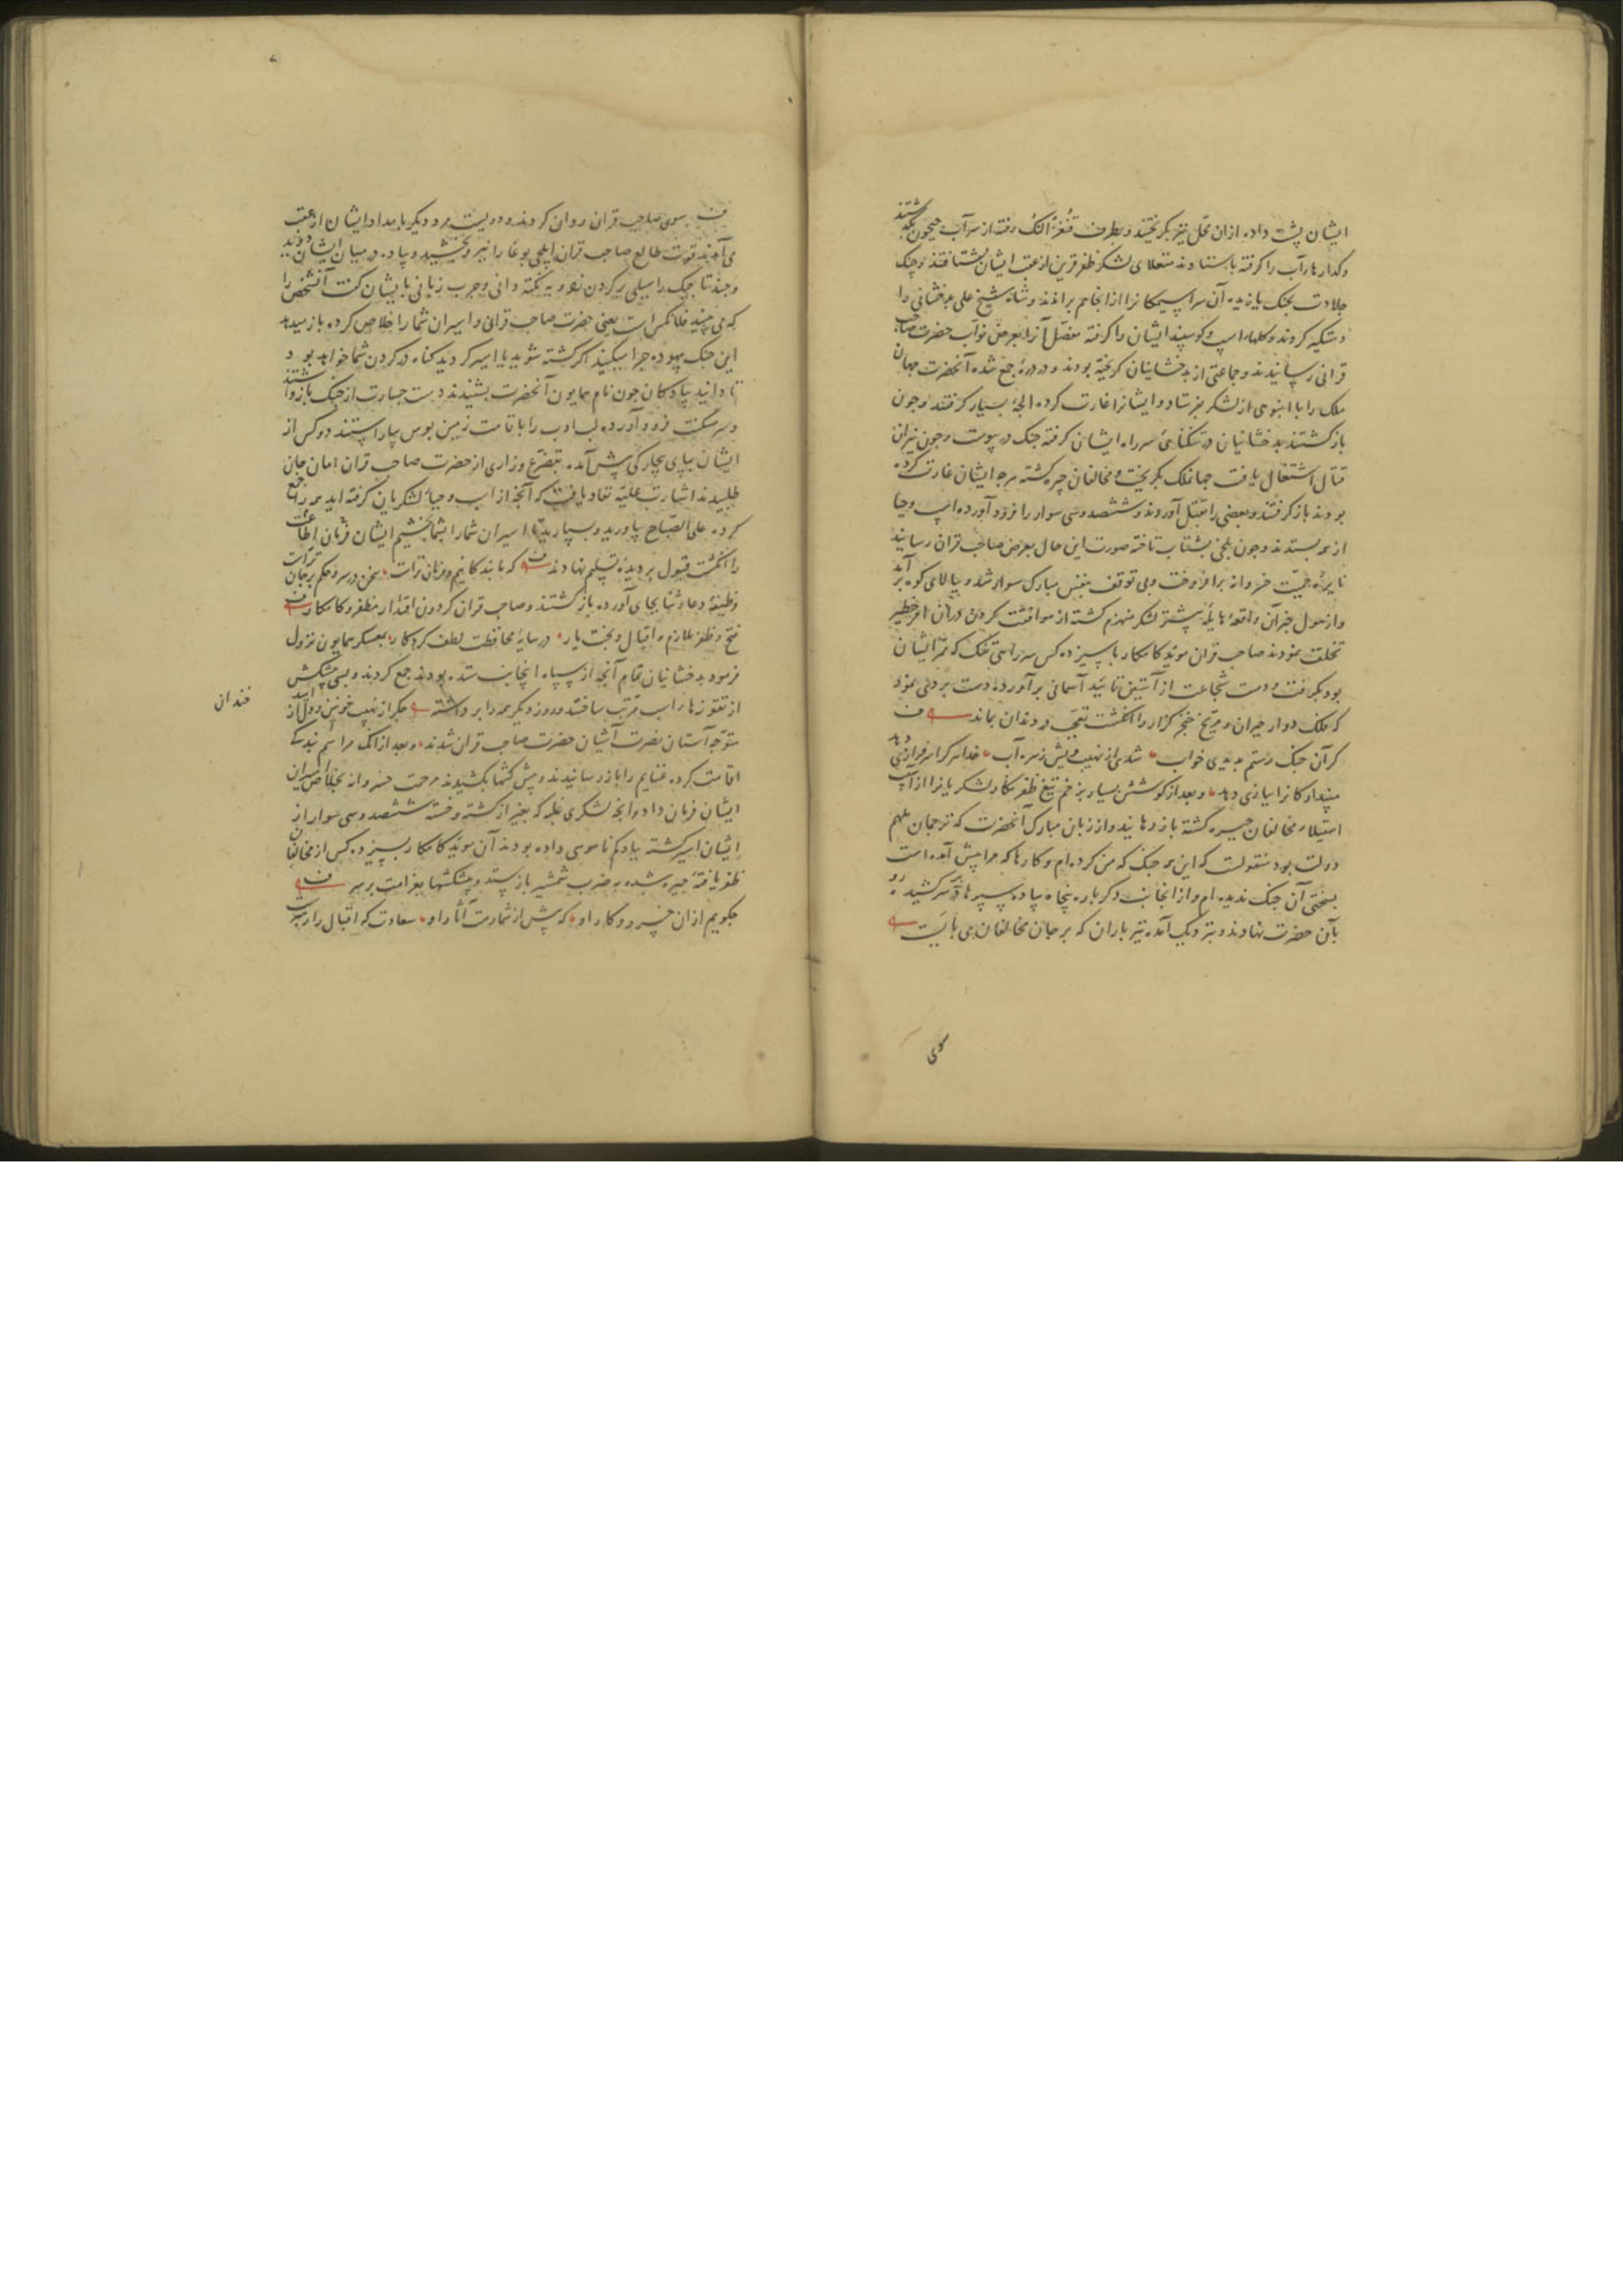 ایشان پشت داده ازان محل نیز بکریختند و بطرف قنغر النک رفته از سر آب جیحون بکذشتند
وکدارهاء آب را کرفته باستادند منقلای لشکر ظفرقرین از عقب ایشان بشتافتند و جنک
جلادت بجنک یازیده آن سراسیمکانرا ازانجا هم براندند و شاه شیخ علی بدخشانی را
دستکیر کردند و کلهاء اسپ و کوسپند ایشان را کرفته مفصل آنرا بعرض نواب حضرت صاحب
قرانی رسانیدند و جماعتی از بدخشانیان کریخته بودند و در درۀ جمع شده آنحضرت جهان
ملک را با انبوهی از لشکر بفرستاد و ایشانرا غارت کرده الجۀ بسیار کرفتند و چون
بازکشتند بدخشانیان در تنکنائی سر راه ایشان کرفته جنک در پیوست و چون نیران
قتال اشتعال یافت جهانملک بکریخت و مخالفان چیره کشته هرچه ایشان غارت کرده
بودند بازکرفتند و بعضی را بقتل آوردند و ششصد و سی سوار را فرود آورده اسپ و جیبا
از همه بستدند و چون بلخی بشتاب تاخته صورت این حال بعرض صاحب قران رسانید
نایرۀ حمیت خسروانه برافروخت و بی توقف بنفس مبارک سوار شد و ببالای کوه برآمد
و از هول خبر آن واقعۀ هایله پیشتر لشکر منهزم کشته از موافقت کردن دران امر خطیر
تخلف نمودند صاحب قران موید کامکار با سیزده کس سر راهی تنک که ممر ایشان
بود بکرفت و دست شجاعت از آستین تایید آسمانی برآورده دست بردی نمود
که فلک دوار حیران و مریخ خنجرکزار را انکشت تعجب در دندان بماند
کر آن جنک رستم بدیدی خواب شدی از نهیب ویش زهره آب خدا هر کرا سرفرازی دهد
میندار کانرا ببازی دهد و بعد از کوشش بسیار بزخم تیغ ظفرنکار لشکریانرا از آسیب
استیلاء مخالفان چیره کشته باز رهانید و از زبان مبارک آنحضرت که ترجمان ملهم
دولت بود منقولست که این همه جنک که من کرده ام و کارها که مرا پیش آمده است
بسختی آن جنک ندیده ام و از انجانب دکر باره پنجاه پیاده سپرها در سر کشیده رو
بآن حضرت نهادند و نزدیک آمده تیرباران که بر جان مخالفان می بایست
سوی
سوی صاحب قران روان کردند و دویست مرد دیکر با مداد ایشان از عقب
می آمدند قوت طالع صاحب قران ایلچی بوغا را نیرو بخشید و پیاده در میان ایشان دوید
و چند تاجیک را سیلی بر کردن زد و به نکته دانی و چرب زبانی با ایشان کفت آنشخص را
که می بینید فلان کس است یعنی حضرت صاحب قرانی و اسیران شما را خلاص کرده باز میدهد
این جنک بیهوده چرا میکنید اکر کشته شوید یا اسیر کردید کناه در کردن شما خواهد بود
تا دانید پیادکان چون نام همایون آنحضرت بشنیدند دست جسارت از جنک بازداشتند
و سر مسکنت فرود آورده لب ادب را باقامت زمین بوس بیاراستند دو کس از
ایشان بپای بیچارکی پیش آمده بتضرع و زاری از حضرت صاحب قران امان جان
طلبیدند اشارت علیه نفاد یافت که آنچه از اسب و جیبا لشکریان کرفته اید همه را جمع
کرده علی الصباح بیاورید و بسپارید تا اسیران شما را بشما بخشیم ایشان فرمان اطاعت
را انکشت قبول بر دیده تسلیم نهادند که ما بندکانیم و فرمان تراست سخن در سر و حکم بر جان تراست
وظیفۀ دعا و ثنا بجای آورده بازکشتند و صاحب قران کردون اقتدار مظفر و کامکار
فتح و ظفر ملازم و اقبال و بخت یار در سایۀ محافظت لطف کردکار بمعسکر همایون نزول
فرمود بدخشانیان تمام آنچه از سپاه اینجانب ستده بودند جمع کردند و بسی پیشکش
از تقوزهاء اسب مرتب ساختند و روز دیکر همه را برداشته جکر از نهیب خونین و دل از امید
خندان
متوجه آستان نصرت آشیان حضرت صاحب قران شدند و بعد از انک مراسم بندکی
اقامت کرده غنایم را باز رسانیدند و پیش کشها بکشیدند مرحمت خسروانه بخلاص اسیران
ایشان فرمان داد و آنچه لشکری غلبه که بغیر از کشته و خسته ششصد و سی سوار از
ایشان اسیر کشته بیادکم ناموسی داده بودند آن موید کامکار بسیزده کس از مخالفان
ظفر یافتۀ چیره شده به ضرب شمشیر باز ستد و پیشکشها بغرامت بر سر
چکویم ازان خسرو و کار او که پیش از شمارست آثار او سعادت کو اقبال را رهبرست